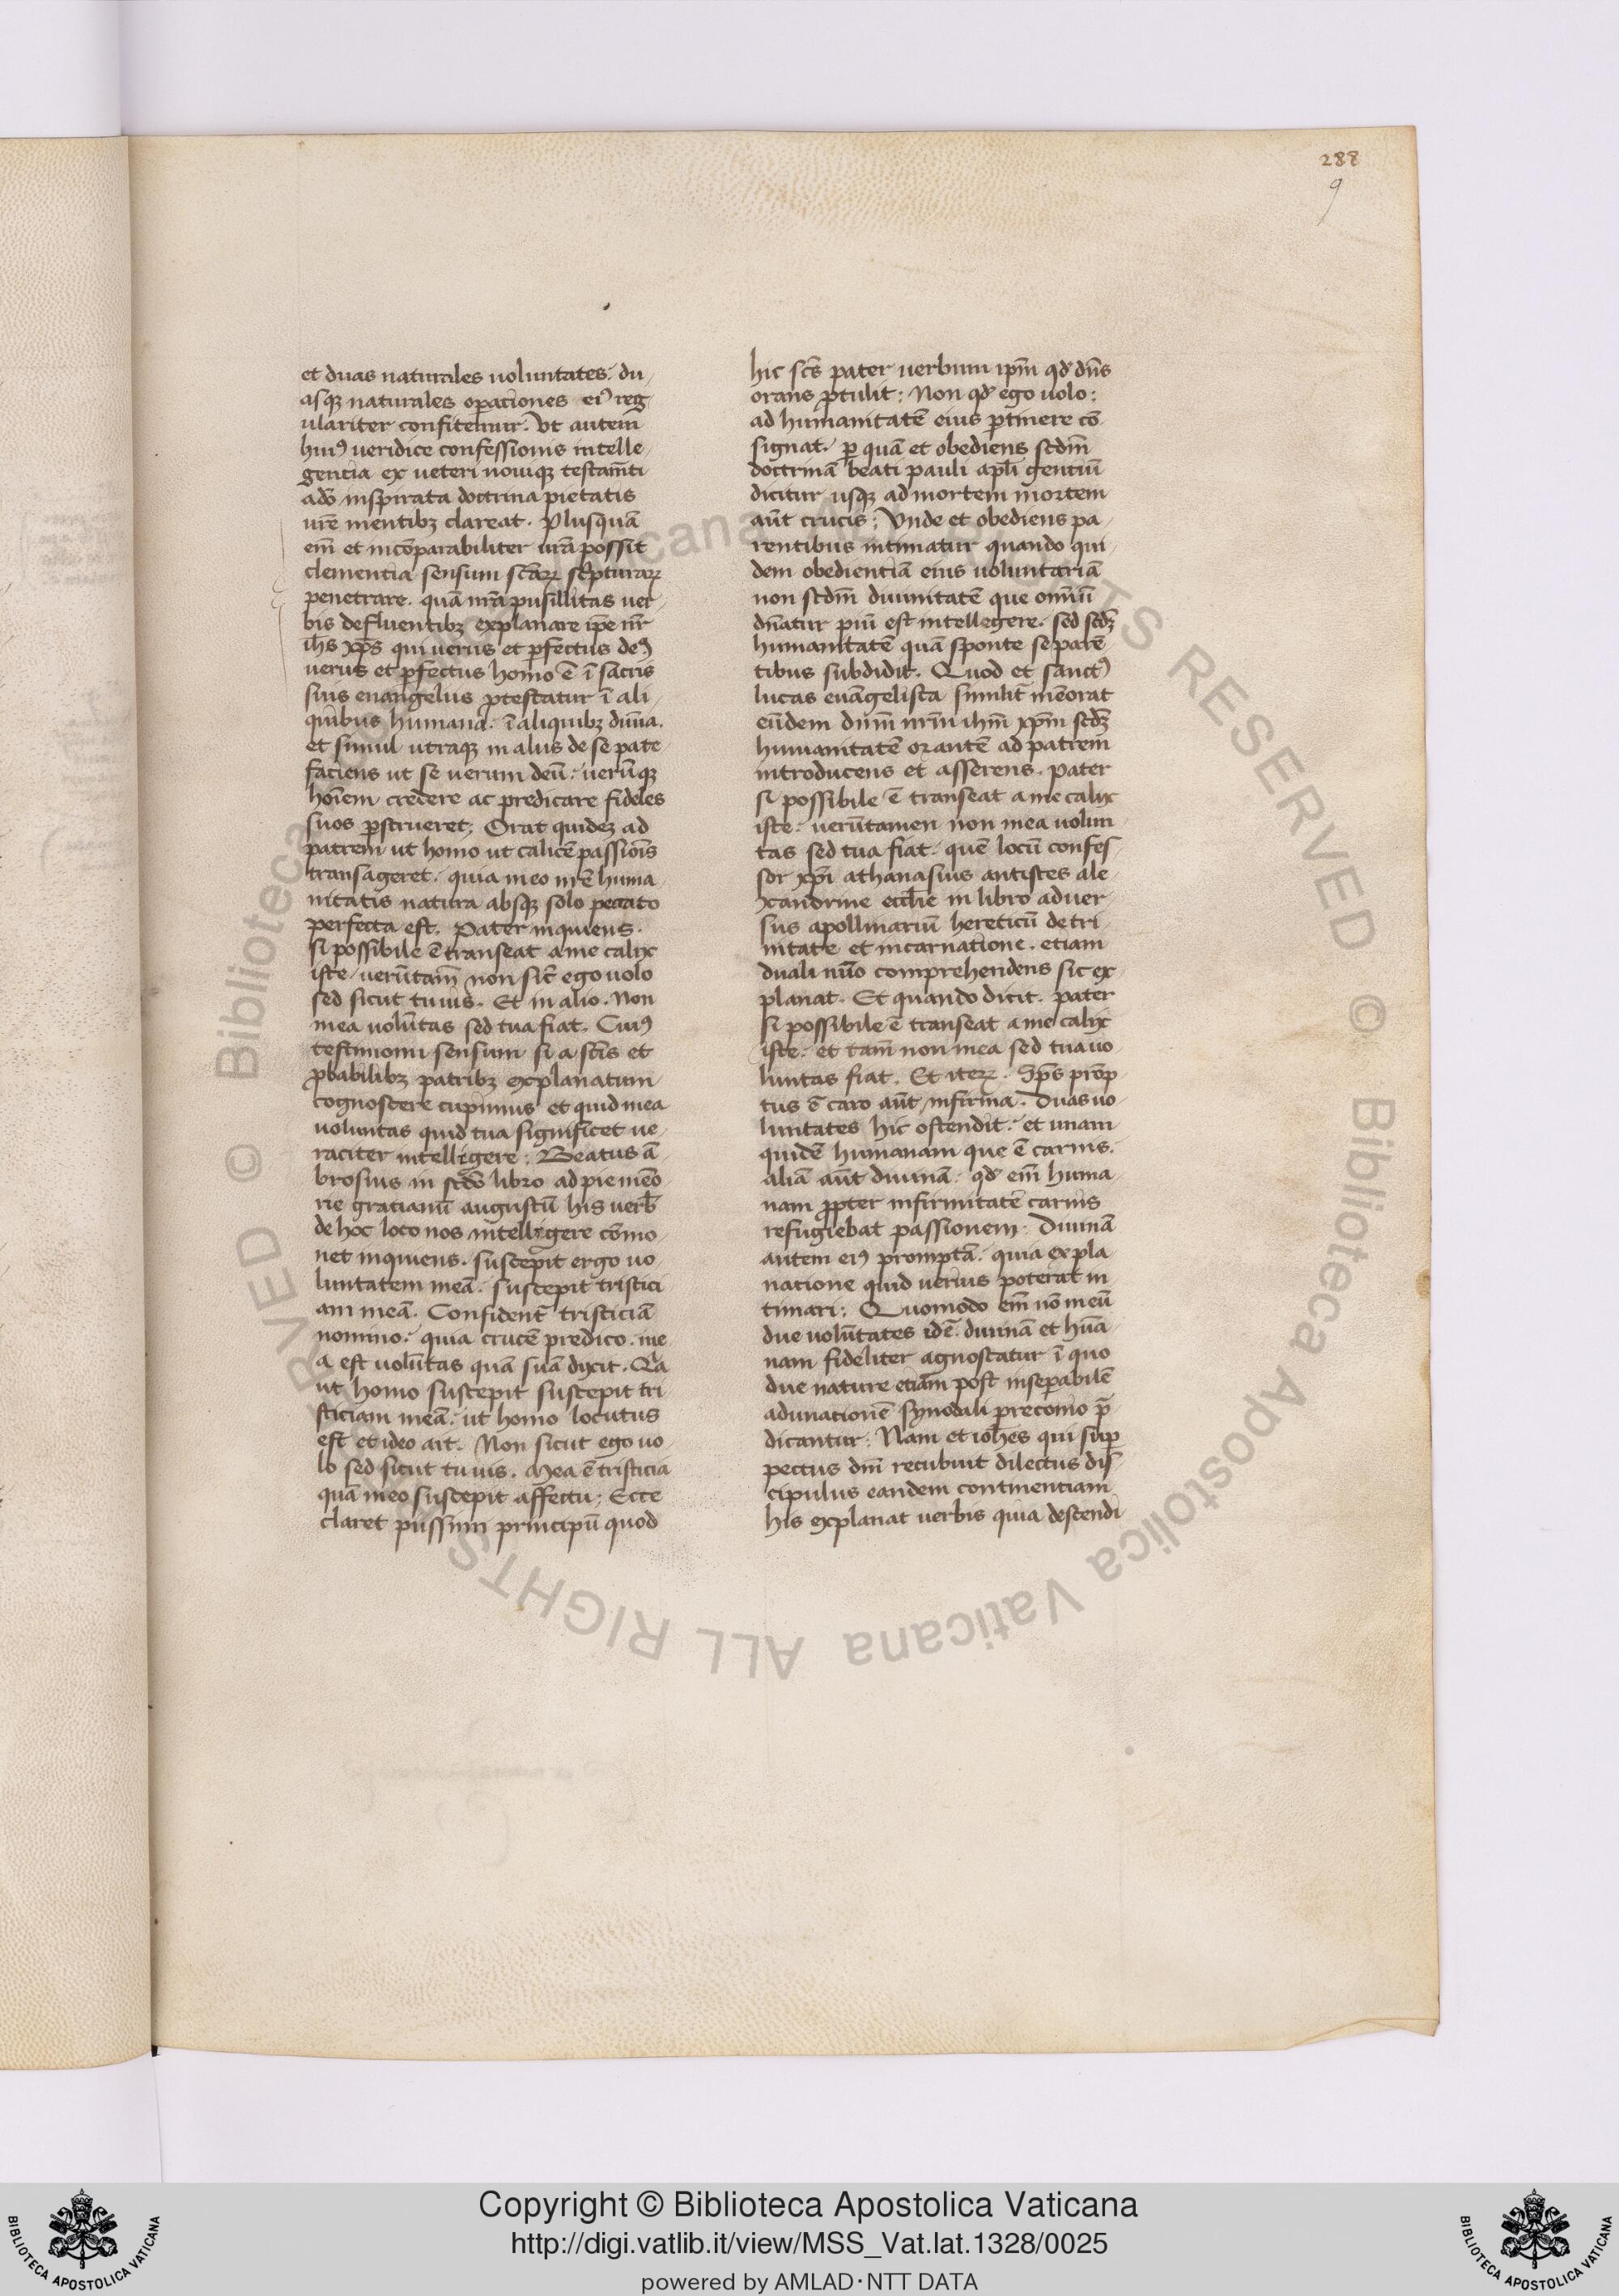 288
9
et duas naturales uoluntates. du-
asqꝫ naturales oꝑationes eiꝰ reg
ulariter confitemur. Vt autem
huiꝰ ueridice confessionis intelle-
gentia ex ueteri nouiqꝫ testam̄ti
a dō inspirata doctrina pietatis
ur̄e mentibꝫ clareat. Plusquā
em̄ et incōparabiliter ur̄a possit
clementia sensum sc̄aꝝ sc̄pturaꝝ
penetrare. quā nr̄a pusillitas uer-
bis defluentibꝫ explanare ip̄e nr̄
ih̄s xp̄s qui uerus et ꝑfectus deꝰ
uerus et ꝑfectus homo ē ī sacris
suis euangeliis ꝓtestatur ī ali-
quibus humana. ī aliquibꝫ diuīa.
et simul utraqꝫ in aliis de se pate-
faciens ut se uerum deū. uerūqꝫ
hoīem credere ac predicare fideles
suos ꝑstrueret; Orat quidez ad
patrem ut homo ut calicē passiōis
transageret. quia in eo nr̄e huma-
nitatis natura absqꝫ solo peccato
perfecta est. Pater inquiens.
si possibile ē transeat a me calix
iste. uerūtam̄ non sic̄ ego uolo
sed sicut tu uis. Et in alio. Non
mea uolūtas sed tua fiat. Cuiꝰ
testimonii sensum si a sc̄is et
ꝓbabilibꝫ patribꝫ explanatum
cognoscere cupimus et quid mea
uoluntas quid tua significet ue-
raciter intelligere: Beatus ā
brosius in sc̄do libro ad pie mēo
rie gratianū augustū his uerb̄
de hoc loco nos intelligere cōmo-
net inquiens. suscepit ergo uo-
luntatem meā. suscepit tristici
am meā. Confident̄ tristiciā
nomino. quia crucē predico. me
a est uolūtas quā suā dixit. Qa
ut homo suscepit suscepit tri
sticiam meā. ut homo locutus
est et ideo ait. Non sicut ego uo-
lo sed sicut tu uis. Mea ē tristicia
quā meo suscepit affectu; Ecce
claret piissimi principū quod
hic sc̄s pater uerbum ip̄m qd̄ dn̄s
orans ꝓtulit: Non qd̄ ego uolo:
ad humanitatē eius ꝑtinere cō
signat. ꝑ quā et obediens sc̄dm̄
doctrinā beati pauli apl̄i gentiū
dicitur usqꝫ ad mortem mortem
aūt crucis: Vnde et obediens pa-
rentibus intimatur quando qui-
dem obedientiā eius uoluntariā
non sc̄dm̄ diuinitatē que omniū
dn̄atur piū est intellegere. sed sc̄dꝫ
humanitatē quā sponte se parē
tibus subdidit. Quod et sanctꝰ
lucas euāgelista similit̄ mēorat
eūdem dnm̄ nrm̄ ihm̄ xpm̄ sc̄dꝫ
humanitatē orantē ad patrem
introducens et asserens. pater
si possibile ē transeat a me calix
iste. uerūtamen non mea uolun
tas sed tua fiat. quē locū confes-
sor xp̄i athanasius antistes ale-
xandrine eccl̄ie in libro aduer-
sus apollinariū hereticū de tri-
nitate et incarnatione. etiam
duali nūo comprehendens sic ex-
planat. Et quando dicit. pater
si possibile ē transeat a me calix
iste. et tam̄ non mea sed tua uo-
luntas fiat. Et iteꝝ. Sp̄s promp
tus ē caro aūt infirma. Duas uo-
luntates hic ostendit. et unam
quidē humanam que ē carnis.
aliā aūt diuinā. qd̄ em̄ huma-
nam ꝓpter infirmitatē carnis
refugiebat passionem. Diuinā
autem eiꝰ promptā. quia expla
natione quid uerius poterat in
timari: Quomodo em̄ nō in eū
due uolūtates idē. diuinā et hūa-
nam fideliter agnoscatur ī quo
due nature etiam post inseꝑabilē
adunationē synodali preconio p̄
dicantur: Nam et ioh̄es qui suꝑ
pectus dn̄i recubuit dilectus dis
cipulus eandem continentiam
his explanat uerbis quia descendi
Copyright © Biblioteca Apostolica Vaticana
http://digi.vatlib.it/view/MSS_Vat.lat.1328/0025
powered by AMLAD·NTT DATA